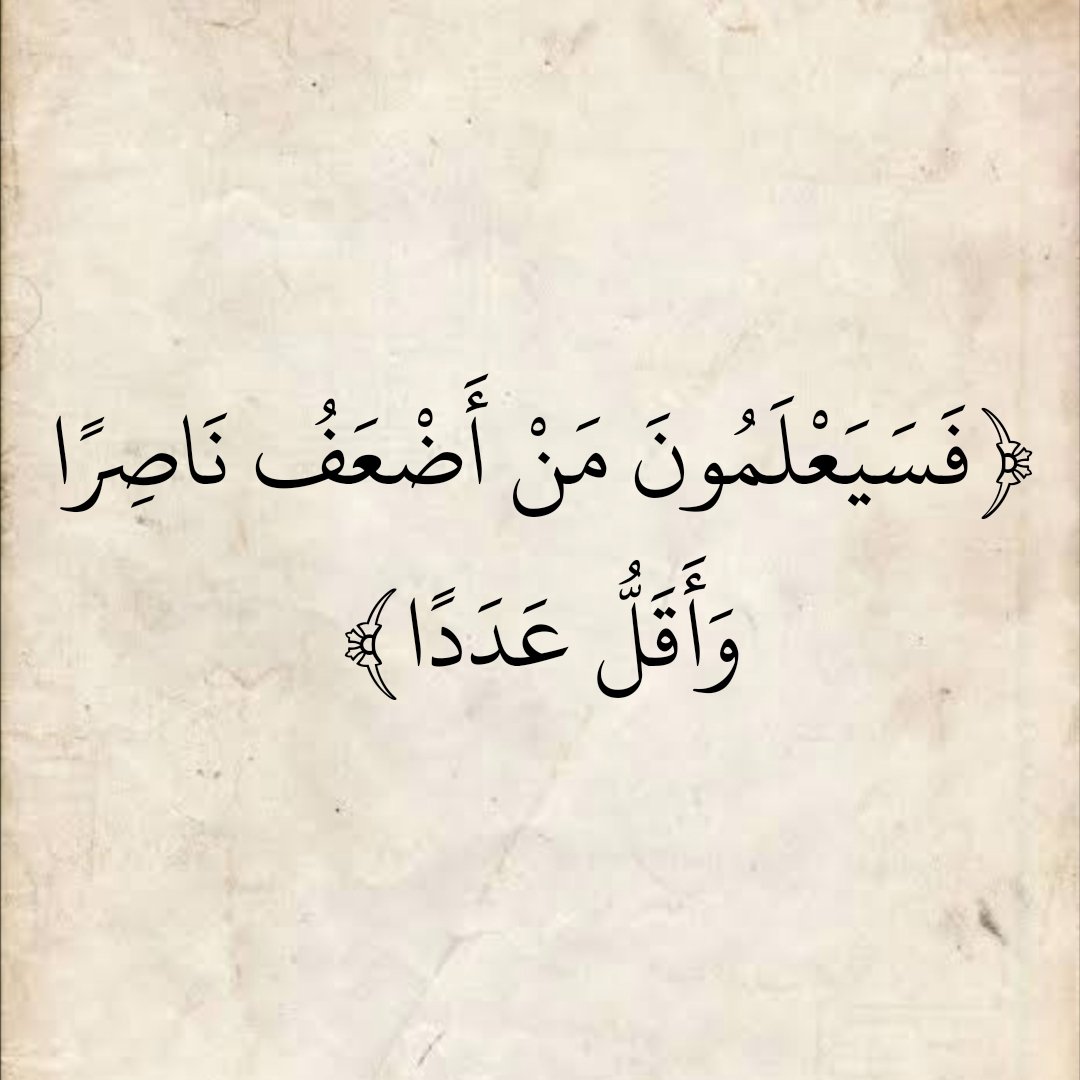 ﴿فَسَيَعْلَمُونَ مَنْ أَضْعَفُ نَاصِرًا
وَأَقَلُّ عَدَدًا﴾